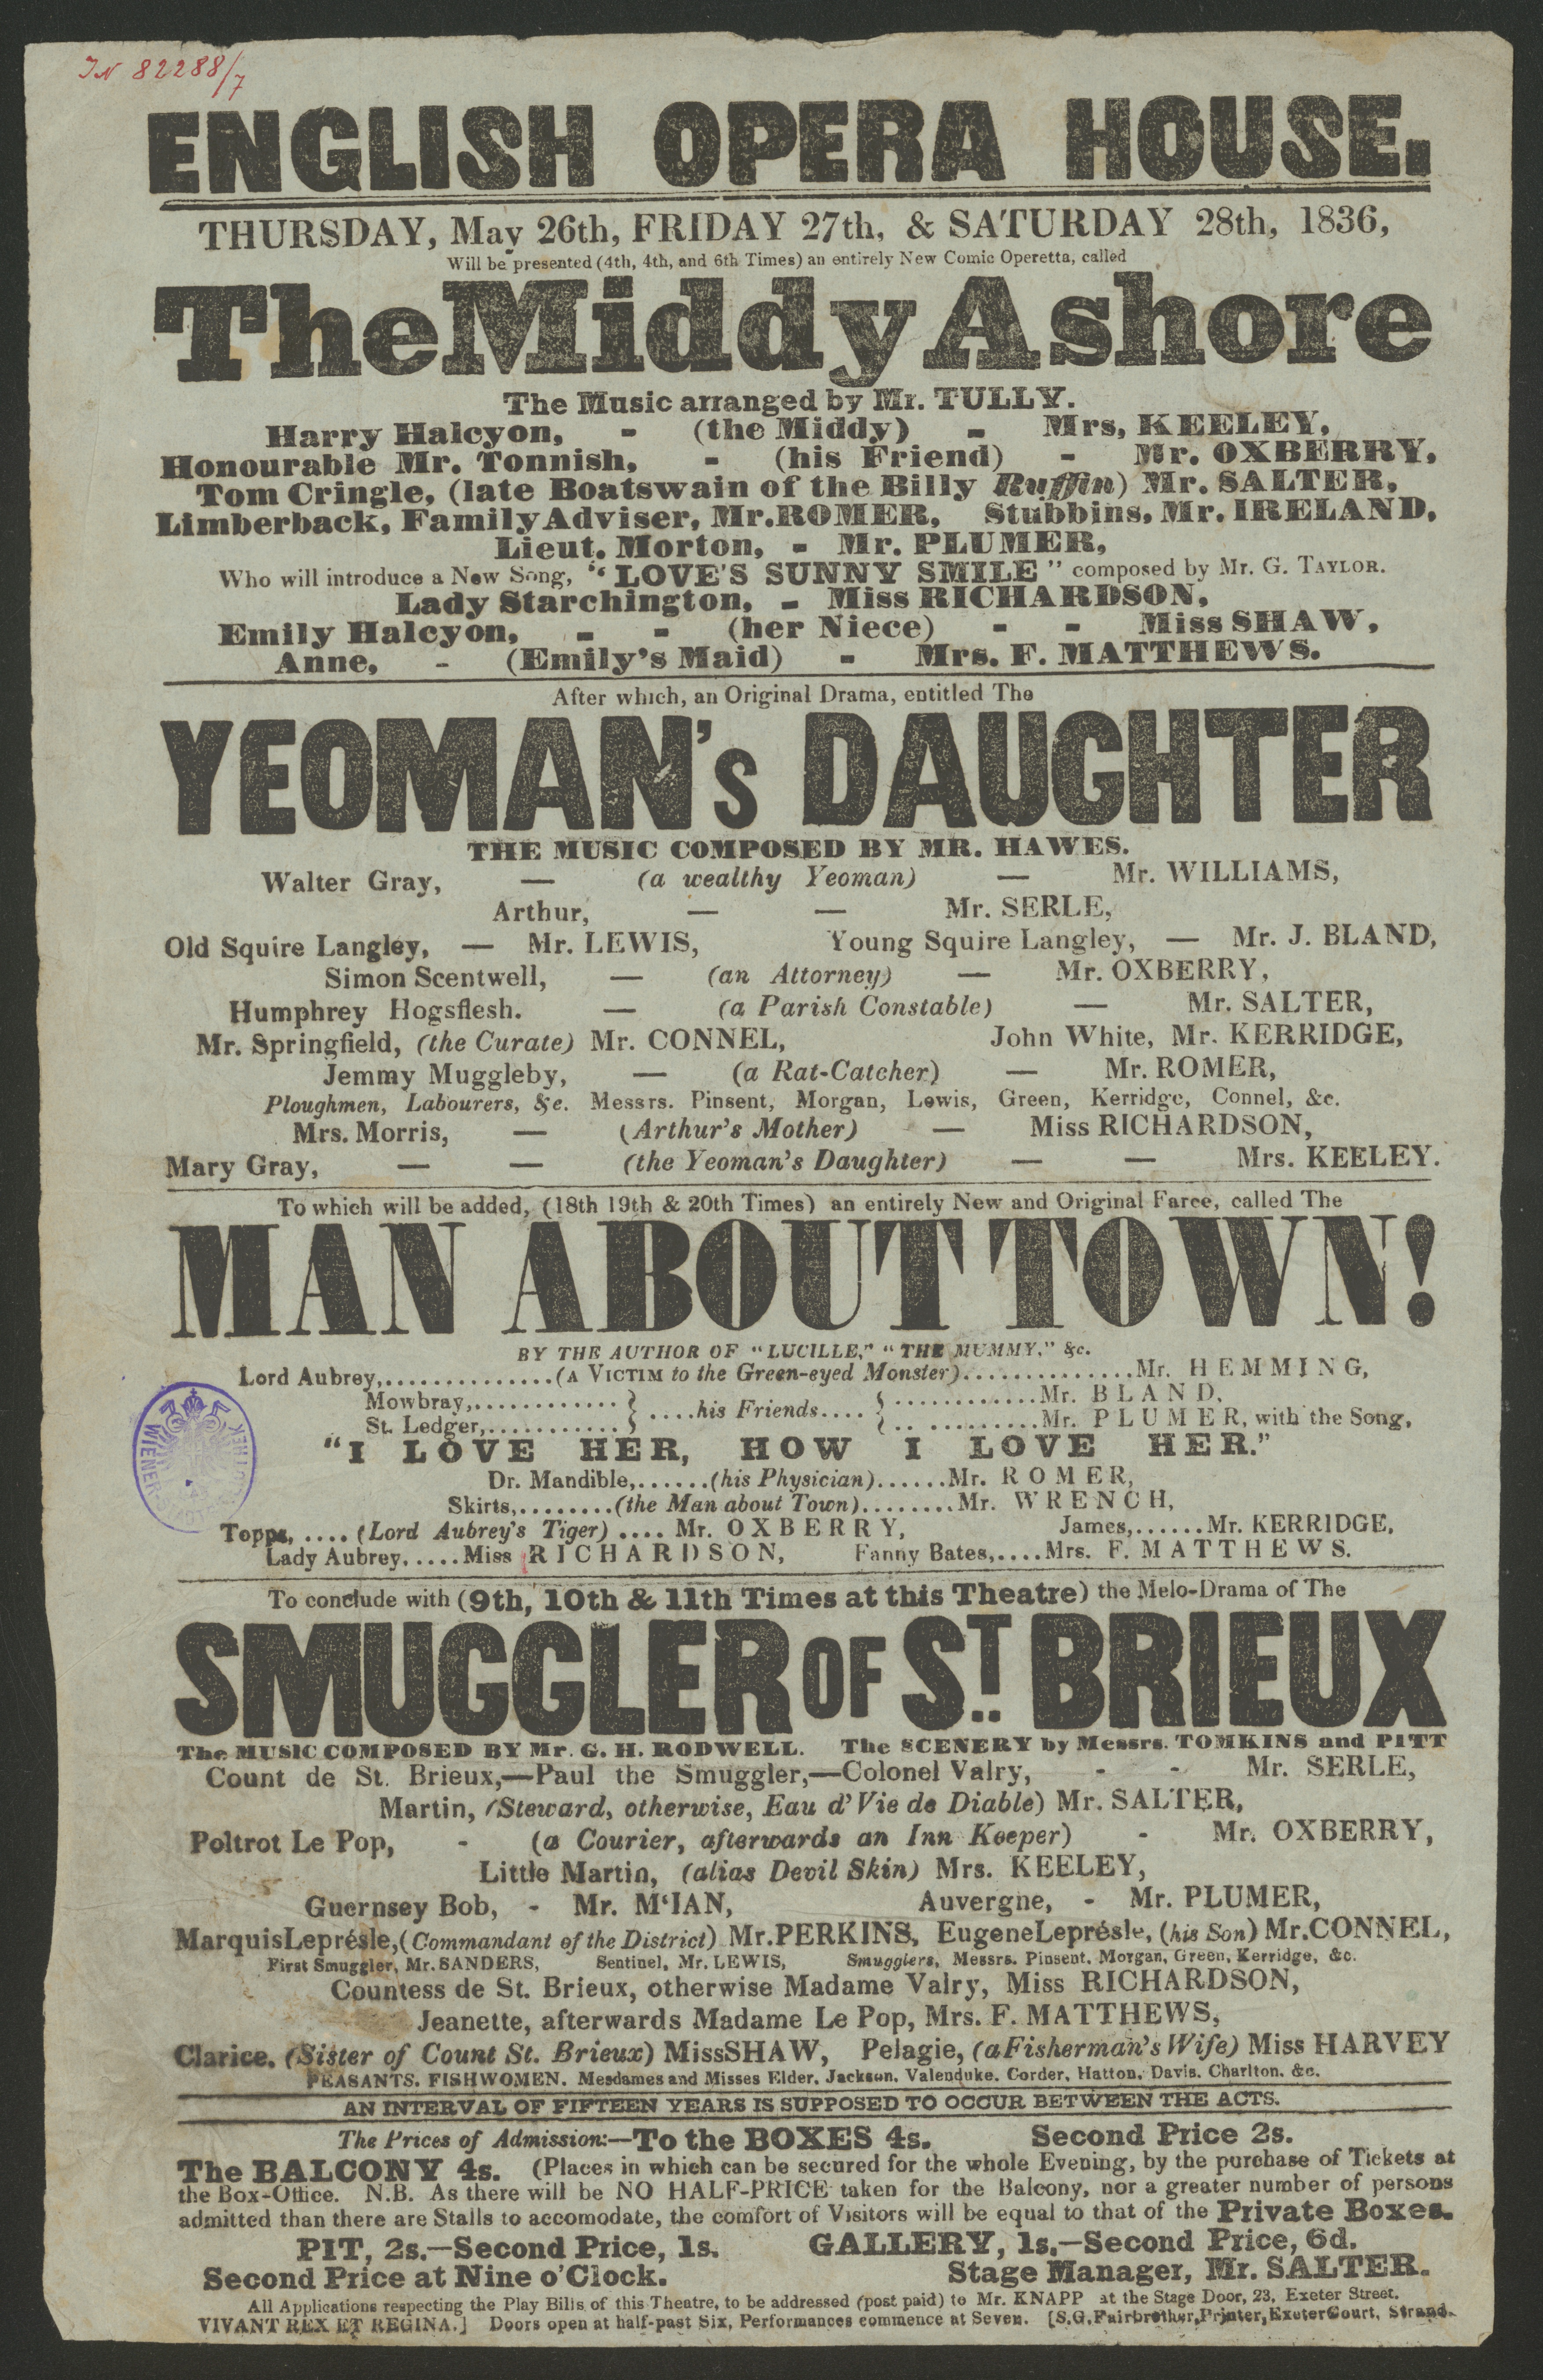 IN 82288/7
ENGLISH OPERA HOUSE.
THURSDAY, May 26th, FRIDAY 27th, & SATURDAY 28th, 1836,
Will be presented (4th, 4th, and 6th Times) an entirely New Comic Operetta, called
The Middy Ashore
The Music arranged by Mr. TULLY.
Harry Halcyon, - (the Middy) - Mrs, KEELEY,
Honourable Mr. Tonnish, - (his Friend) - Mr. OXBERRY,
Tom Cringle, (late Boatswain of the Billy Ruffin) Mr. SALTER,
Limberback, Family Adviser, Mr. ROMER, Stubbins, Mr. IRELAND,
Lieut. Morton, - Mr. PLUMER,
Who will introduce a New Song, "LOVE'S SUNNY SMILE" composed by Mr. G. TAYLOR.
Lady Starchington, - Miss RICHARDSON,
Emily Halcyon, - - (her Niece) - - Miss SHAW,
Anne, - (Emily's Maid) - Mrs. F. MATTHEWS.
After which, an Original Drama, entitled The
YEOMAN's DAUGHTER
THE MUSIC COMPOSED BY MR. HAWES.
Walter Gray, — (a wealthy Yeoman) — Mr. WILLIAMS,
Arthur, — — Mr. SERLE,
Old Squire Langley, — Mr. LEWIS, Young Squire Langley, — Mr. J. BLAND,
Simon Scentwell, — (an Attorney) — Mr. OXBERRY,
Humphrey Hogsflesh. — (a Parish Constable) — Mr. SALTER,
Mr. Springfield, (the Curate) Mr. CONNEL, John White, Mr. KERRIDGE,
Jemmy Muggleby, — (a Rat-Catcher) — Mr. ROMER,
Ploughmen, Labourers, &c. Messrs. Pinsent, Morgan, Lewis, Green, Kerridge, Connel, &c.
Mrs. Morris, — (Arthur's Mother) — Miss RICHARDSON,
Mary Gray, — — (the Yeoman's Daughter) — — Mrs. KEELEY.
To which will be added, (18th 19th & 20th Times) an entirely New and Original Farce, called The
MAN ABOUT TOWN!
BY THE AUTHOR OF "LUCILLE," "THE MUMMY," &c.
Lord Aubrey,..............(A VICTIM to the Green-eyed Monster)...............Mr. HEMMING,
Mowbray,............ } ....his Friends.... { ............Mr. BLAND,
St. Ledger,............ } { ............Mr. PLUMER, with the Song,
"I LOVE HER, HOW I LOVE HER."
Dr. Mandible,......(his Physician)......Mr. ROMER,
Skirts,........(the Man about Town)........Mr. WRENCH,
Topps, ....(Lord Aubrey's Tiger) .... Mr. OXBERRY, James,......Mr. KERRIDGE,
Lady Aubrey,....Miss RICHARDSON, Fanny Bates,....Mrs. F. MATTHEWS.
WIENER
To conclude with (9th, 10th & 11th Times at this Theatre) the Melo-Drama of The
SMUGGLER OF ST. BRIEUX
The MUSIC COMPOSED BY Mr. G. H. RODWELL. The SCENERY by Messrs. TOMKINS and PITT
Count de St. Brieux,—Paul the Smuggler,—Colonel Valry, - - Mr. SERLE,
Martin, (Steward, otherwise, Eau d'Vie de Diable) Mr. SALTER,
Poltrot Le Pop, - (a Courier, afterwards an Inn Keeper) - Mr. OXBERRY,
Little Martin, (alias Devil Skin) Mrs. KEELEY,
Guernsey Bob, - Mr. M'IAN, Auvergne, - Mr. PLUMER,
Marquis Leprésle, (Commandant of the District) Mr. PERKINS, Eugene Leprésle, (his Son) Mr. CONNEL,
First Smuggler, Mr. SANDERS, Sentinel, Mr. LEWIS, Smugglers, Messrs. Pinsent, Morgan, Green, Kerridge, &c.
Countess de St. Brieux, otherwise Madame Valry, Miss RICHARDSON,
Jeanette, afterwards Madame Le Pop, Mrs. F. MATTHEWS,
Clarice. (Sister of Count St. Brieux) Miss SHAW, Pelagie, (a Fisherman's Wife) Miss HARVEY
PEASANTS. FISHWOMEN. Mesdames and Misses Elder, Jackson, Valenduke, Corder, Hatton, Davis, Charlton, &c.
AN INTERVAL OF FIFTEEN YEARS IS SUPPOSED TO OCCUR BETWEEN THE ACTS.
The Prices of Admission:—To the BOXES 4s. Second Price 2s.
The BALCONY 4s. (Places in which can be secured for the whole Evening, by the purchase of Tickets at
the Box-Office. N.B. As there will be NO HALF-PRICE taken for the Balcony, nor a greater number of persons
admitted than there are Stalls to accomodate, the comfort of Visitors will be equal to that of the Private Boxes.
PIT, 2s.—Second Price, 1s. GALLERY, 1s.—Second Price, 6d.
Second Price at Nine o'Clock. Stage Manager, Mr. SALTER.
All Applications respecting the Play Bills of this Theatre, to be addressed (post paid) to Mr. KNAPP at the Stage Door, 23, Exeter Street.
VIVANT REX ET REGINA.] Doors open at half-past Six, Performances commence at Seven. [S.G. Fairbrother, Printer, Exeter Court, Strand.